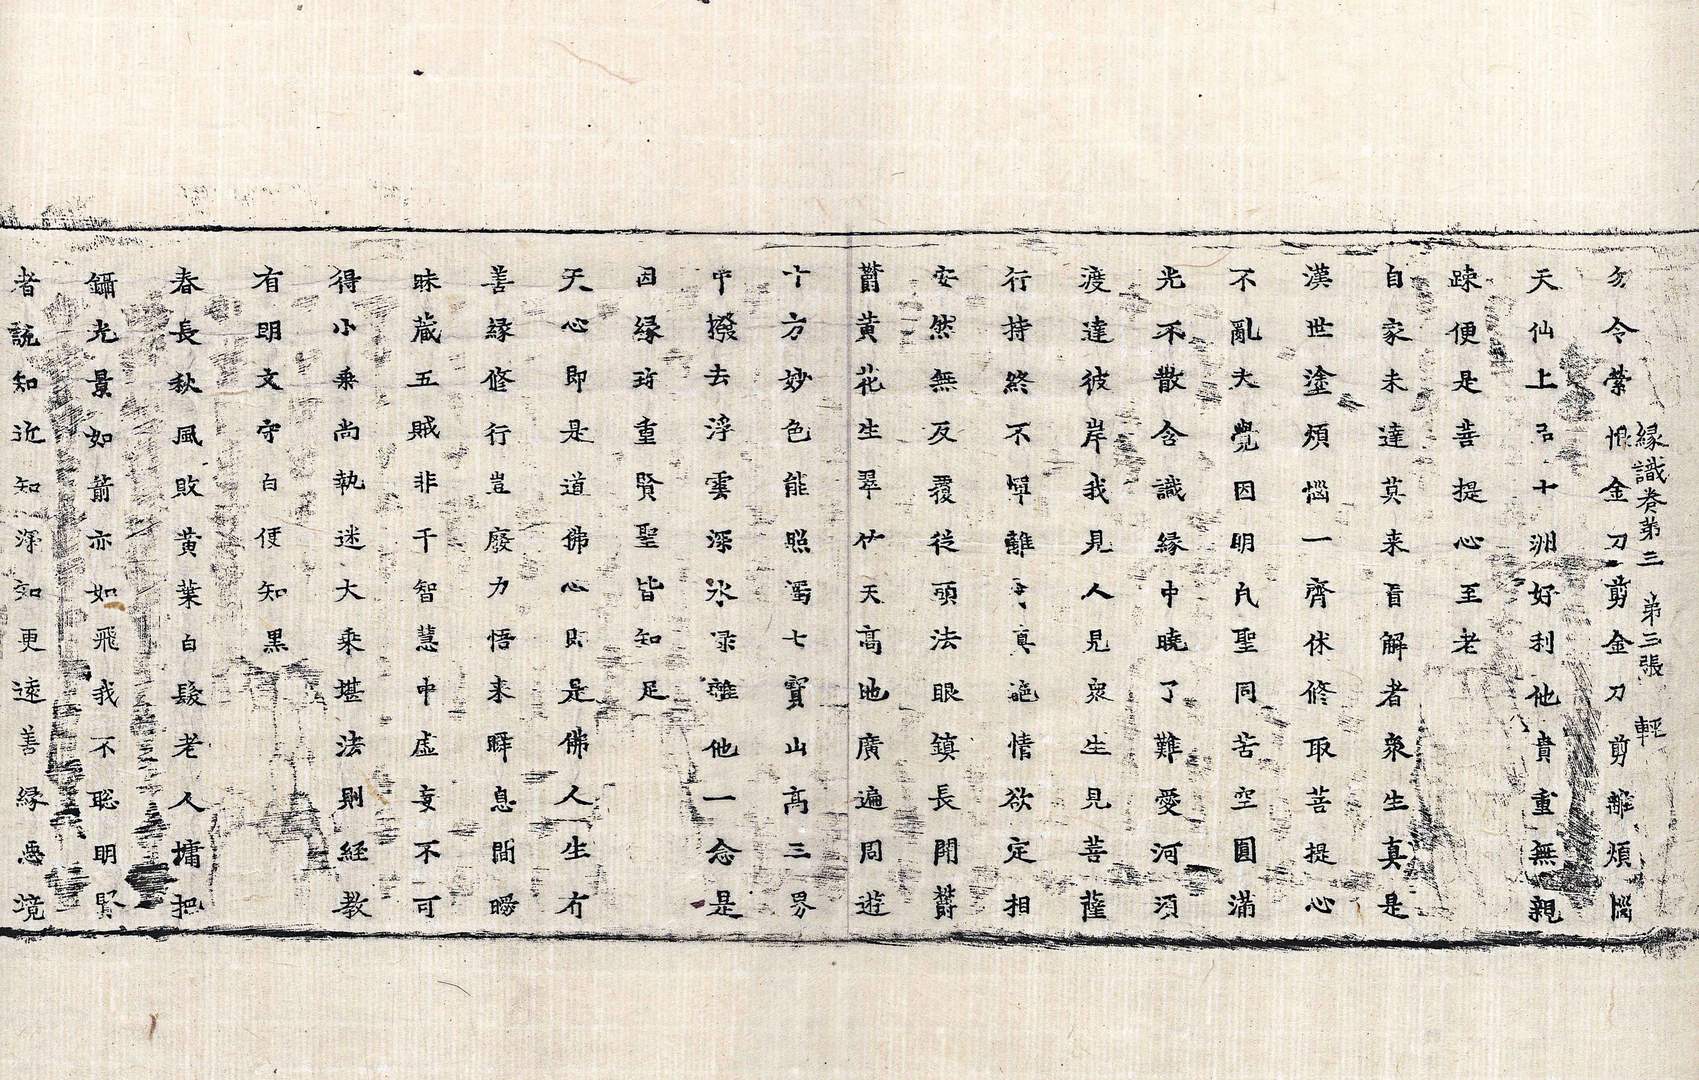 緣識卷第三 第三張 輕
勿令縈惧金刀剪金刀剪雛煩惱
天仙上召十洲好利他貴重無親
踈便是菩提心至老
自家未達莫来盲解者衆生真是
漢世塗煩惱一齊休修取菩提心
不亂大覺因明凡聖同苦空圓滿
光不散含識緣中曉了難愛河須
渡達彼岸我見人見衆生見菩薩
行持終不憚離 真 情欲定相
安然無反覆従頭法眼鎮長開欝
欝黄花生翠竹天髙地廣遍周遊
十方妙色能照濁七寳山髙三界
中撥去浮雲深水 雛他一念是
因緣珎重賢聖皆知足
天心即是道佛心即是佛人生有
善緣修行豈廢力悟来瞬息間曚
昧蔵五賊非干智慧中虛妄不可
得小乘尚執迷大乘堪法則経教
有明文守白便知黒
春長秋風敗黄葉白髮老人墉把
鑷光景如箭亦如飛我不聡明堅
者説知近知深知更遠善緣惡境